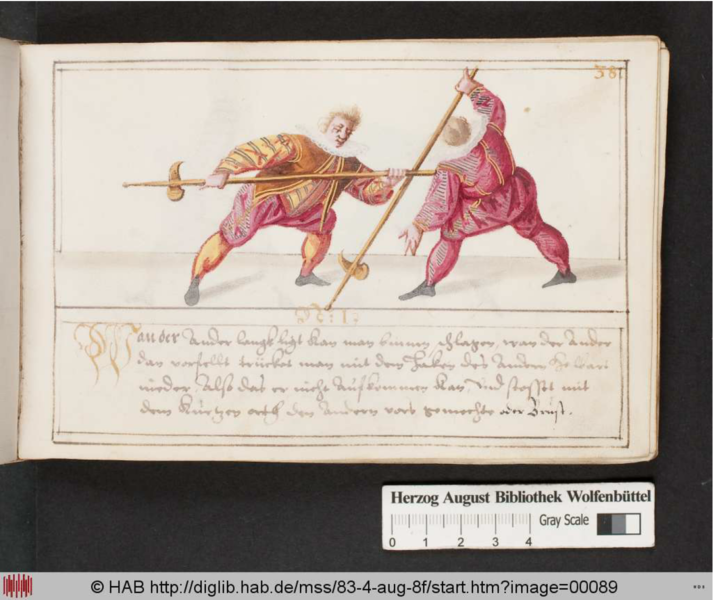 38
N: 1:
Wan der Ander langk ligt kan man binnen schlagen, wan der Ander
dan vorfellt trücket man mit dem haken des Andern Helbart
nieder, Also das er nicht Aufkommen kan, Und stosset mit
dem kurtzen orth den Andern vors gemechte oder Brust.
Herzog August Bibliothek Wolfenbüttel
Gray Scale
0 1 2 3 4
© HAB http://diglib.hab.de/mss/83-4-aug-8f/start.htm?image=00089